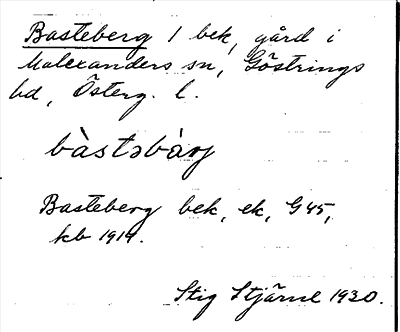 Basteberg 1 bek, gård i
Malexanders sn, Göstrings
hd, Österg. l.
bàstəbàrj
Basteberg bek, ek, G45,
kb 1914.
Stig Stjärne 1930.